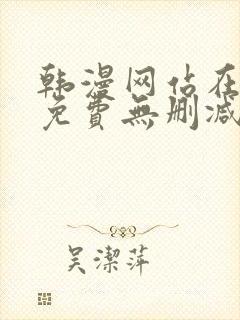 韩漫网站在
免費無删减
吴潔萍